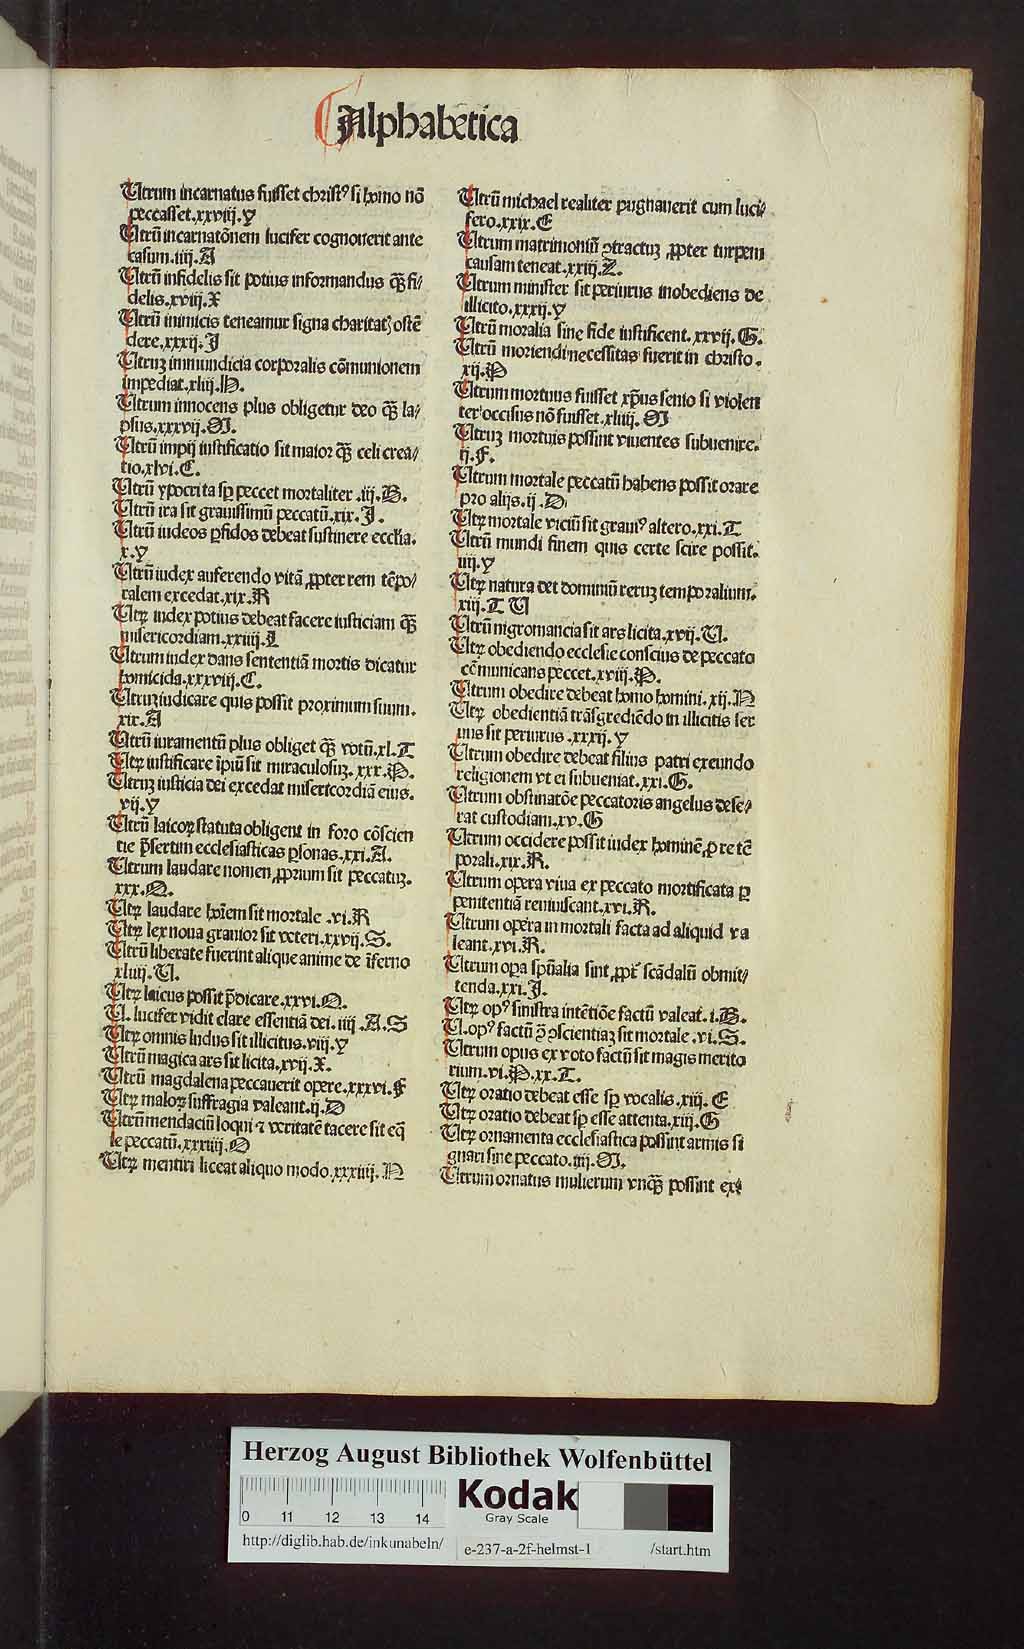 Alphabetica
Utrum incarnatus fuisset christꝰ si homo nō
peccasset.xxviij.Y
Utrū incarnatōnem lucifer cognouerit ante
casum.iiij.A
Utrū infidelis sit potius informandus q̄ꝫ fi⸗
delis.xviij.X
Utrū inimicis teneamur signa charitatꝭ ostē
dere.xxxij.J
Utruꝫ immundicia corporalis cōmunionem
impediat.xliij.H.
Utrum innocens plus obligetur deo q̄ꝫ la⸗
psus.xxxvij.M.
Utrū impij iustificatio sit maior q̄ꝫ celi crea⸗
tio.xlvi.C.
Utrū ypocrita sꝑ peccet mortaliter.iij.B.
Utrū ira sit grauissimū peccatū.xix.J.
Utrū iudeos ꝑfidos debeat sustinere ecclīa.
x.Y
Utrū iudex auferendo vitā ꝓpter rem tēpo⸗
ralem excedat.xix.R
Utrꝫ iudex potius debeat facere iusticiam q̄ꝫ
misericordiam.xxiiij.L
Utrum iudex dans sententiā mortis dicatur
homicida.xxxviij.C.
Utruꝫ iudicare quis possit proximum suum.
xix.A
Utrū iuramentū plus obliget q̄ꝫ votū.xl.T
Utrꝫ iustificare īpiū sit miraculosuꝫ.xxx.P.
Utruꝫ iusticia dei excedat misericordiā eius.
vij.Y
Utrū laicoꝝ statuta obligent in foro cōscien
tie p̄sertim ecclesiasticas ꝑsonas.xxi.A.
Utrum laudare nomen ꝓprium sit peccatuꝫ.
xxx.O.
Utrꝫ laudare hoīem sit mortale.vi.R
Utrꝫ lex noua grauior sit veteri.xxvij.S.
Utrū liberate fuerint alique anime de īferno
xliiij.U.
Utrꝫ laicus possit p̄dicare.xxvi.O.
U. lucifer vidit clare essentiā dei.iiij.A.S
Utrꝫ omnis ludus sit illicitus.viij.Y
Utrū magica ars sit licita.xvij.X.
Utrū magdalena peccauerit opere.xxxvi.F
Utrꝫ maloꝝ suffragia valeant.ij.D
Utrū mendaciū loqui ⁊ veritatē tacere sit eq̄
le peccatū.xxxiiij.O
Utrꝫ mentiri liceat aliquo modo.xxxiiij.N
Utrū michael realiter pugnauerit cum luci⸗
fero.xxix.E
Utrum matrimoniū ꝯtractuꝫ ꝓpter turpem
causam teneat.xxiij.Z.
Utrum minister sit periurus inobediens de
illicito.xxxij.Y
Utrū moralia sine fide iustificent.xxvij.G.
Utrū moriendi necessitas fuerit in christo.
xij.P
Utrum mortuus fuisset xp̄us senio si violen
ter occisus nō fuisset.xliiij.M
Utruꝫ mortuis possint viuentes subuenire.
ij.F.
Utrum mortale peccatū habens possit orare
pro alijs.ij.D
Utrꝫ mortale viciū sit grauiꝰ altero.xxi.T
Utrū mundi finem quis certe scire possit.
iiij.Y
Utrꝫ natura det dominiū reruꝫ temporalium.
xiij.T U
Utrū nigromancia sit ars licita.xvij.U.
Utrꝫ obediendo ecclesie conscius de peccato
cōmunicans peccet.xviij.P.
Utrum obedire debeat homo homini.xij.N
Utrꝫ obedientiā trāsgrediēdo in illicitis ser
uus sit periurus.xxxij.Y
Utrum obedire debeat filius patri exeundo
religionem vt ei subueniat.xxi.G.
Utrum obstinatōe peccatoris angelus dese⸗
rat custodiam.xv.G
Utrum occidere possit iudex hominē ꝓ re tē
porali.xix.R.
Utrum opera viua ex peccato mortificata ꝑ
penitentiā reuiuiscant.xvi.R.
Utrum opera in mortali facta ad aliquid va
leant.xvi.R.
Utrum oꝑa spūalia sint ꝓpt̄ scādalū obmit⸗
tenda.xxi.J.
Utrꝫ opꝰ sinistra intētiōe factū valeat.i.B.
U.opꝰ factū ꝯ̄ ꝯscientiaꝫ sit mortale.vi.S.
Utrum opus ex voto factū sit magis merito
rium.vi.P.xx.T.
Utrꝫ oratio debeat esse sꝑ vocalis.xiij.E
Utrꝫ oratio debeat sꝑ esse attenta.xiij.G
Utrꝫ ornamenta ecclesiastica possint armis si
gnari sine peccato.iiij.M.
Utrum ornatus mulierum vnq̄ꝫ possint ex⸗
Herzog August Bibliothek Wolfenbüttel
0 11 12 13 14
Kodak
Gray Scale
http://diglib.hab.de/inkunabeln/ e-237-a-2f-helmst-1 /start.htm